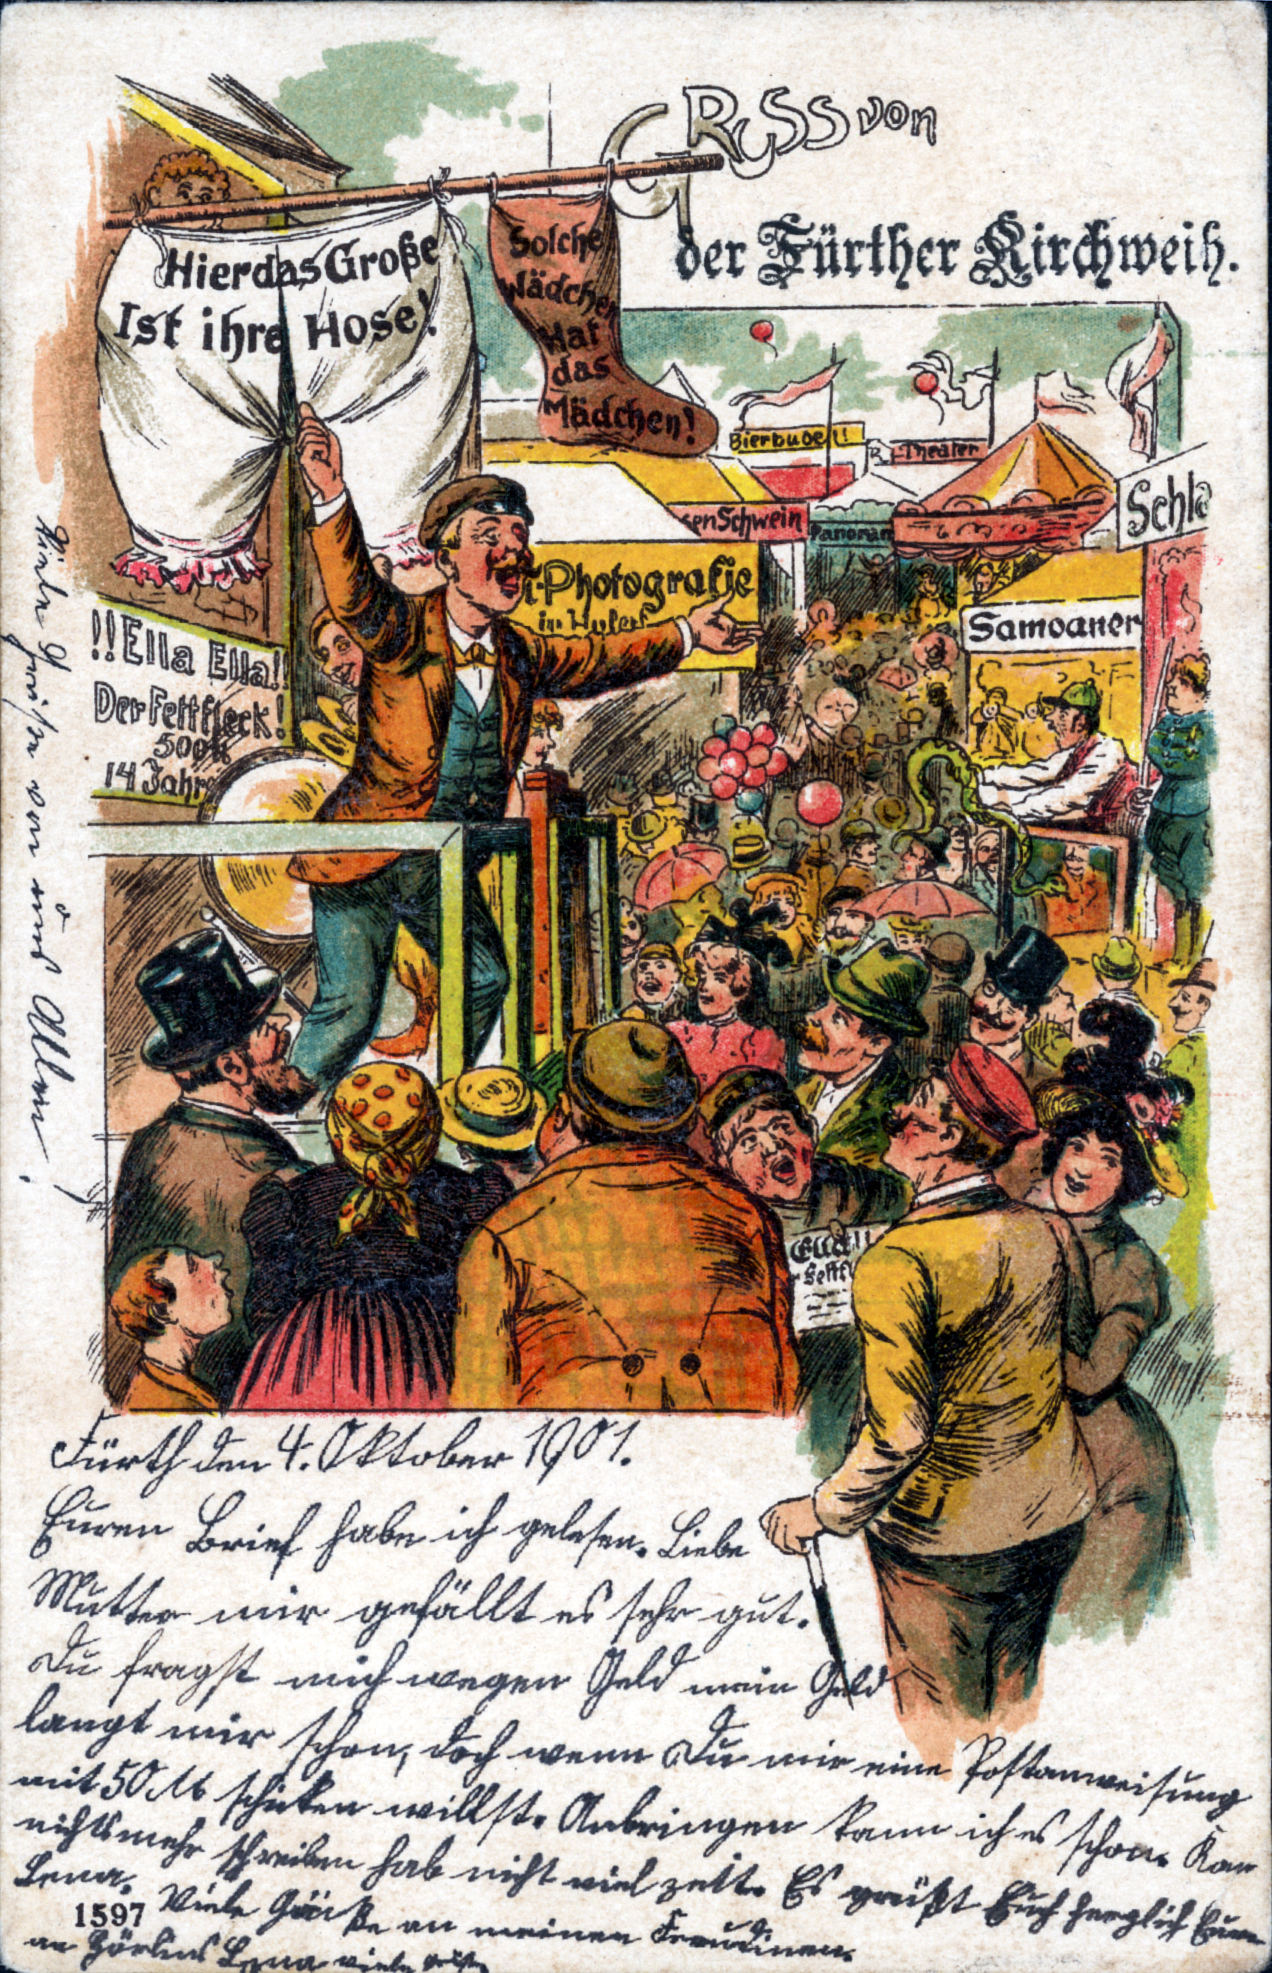 Gruss von
der Fürther Kirchweih.
Hier das Große
Ist ihre Hose!
Solche
Wädchen
Hat
das
Mädchen!
Bierbuden!!
Theater
sen Schwein
Panoram
Schla
t-Photografie
in
Samoaner
!!Ella Ella!!
Der Fettfleck!
500
14 Jahr
Ella!!
r Fettfl
Viele Grüße von uns Allen!
Fürth den 4. Oktober 1901.
Euren Brief habe ich gelesen. Liebe
Mutter mir gefällt es sehr gut.
Du fragst mich wegen Geld mein Geld
langt mir schon, doch wenn Du mir eine Postanweisung
mit 50 M schicken willst. Anbringen kann ich es schon. Kan
nichts mehr schreiben hab nicht viel zeit. Es grüßt Euch herzlich Eure
Lena.
1597
Viele Grüße an meinen Freudinen.
an Lena viele